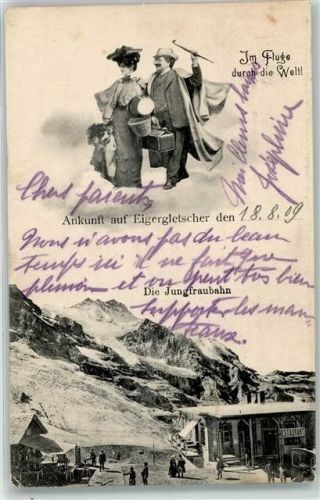 Im Fluge
durch die Welt!
Joséphine
Chers parents
Ankunft auf Eigergletscher den 18.8.09
Nous n'avons pas du beau
temps ici il ne fait que
et on peut très bien
Die Jungfraubahn
supporter les man
teaux.
RESTAURANT